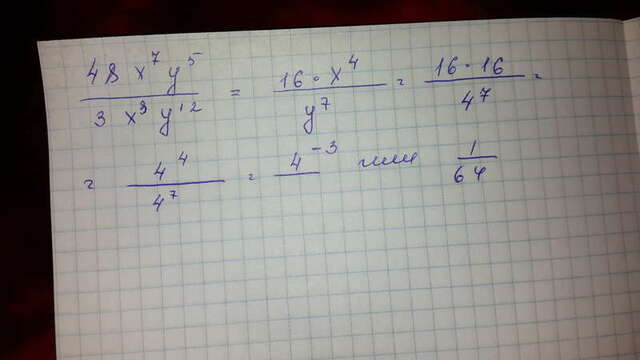 48 x⁷ y⁵ / 3 x³ y¹² = 16 · x⁴ / y⁷ = 16 · 16 / 4⁷ =
= 4⁴ / 4⁷ = 4⁻³ или 1 / 64